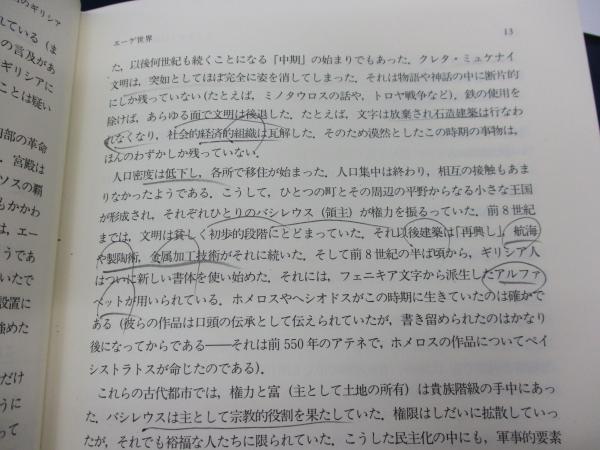 エーゲ世界
13
た，以後何世紀も続くことになる「中期」の始まりでもあった．クレタ・ミュケナイ
文明は，突如としてほぼ完全に姿を消してしまった．それは物語や神話の中に断片的
にしか残っていない（たとえば，ミノタウロスの話や，トロヤ戦争など）．鉄の使用を
除けば，あらゆる面で文明は後退した．たとえば，文字は放棄され石造建築は行なわ
れなくなり，社会的経済的組織は瓦解した．そのため漠然としたこの時期の事物は，
ほんのわずかしか残っていない．
人口密度は低下し，各所で移住が始まった．人口集中は終わり，相互の接触もあま
りなかったようである．こうして，ひとつの町とその周辺の平野からなる小さな王国
が形成され，それぞれひとりのバシレウス（領主）が権力を振るっていた．前8世紀
までは，文明は貧しく初歩的段階にとどまっていた．それ以後建築は「再興し」，航海
や製陶術，金属加工技術がそれに続いた．そして前8世紀の半ば頃から，ギリシア人
はついに新しい書体を使い始めた．それには，フェニキア文字から派生したアルファ
ベットが用いられている．ホメロスやヘシオドスがこの時期に生きていたのは確かで
ある（彼らの作品は口頭の伝承として伝えられていたが，書き留められたのはかなり
後になってからである——それは前550年のアテネで，ホメロスの作品についてペイ
シストラトスが命じたのである）．
これらの古代都市では，権力と富（主として土地の所有）は貴族階級の手中にあっ
た．バシレウスは主として宗教的役割を果たしていた．権限はしだいに拡散していっ
たが，それでも裕福な人たちに限られていた．こうした民主化の中にも，軍事的要素
のギリシア
れている（ま
の言及があ
ギリシアに
ことは疑い
部の革命
．宮殿は
ソスの覇
もかかわ
は，エー
うであ
いたで
設置に
強めた
だけ
うに
って